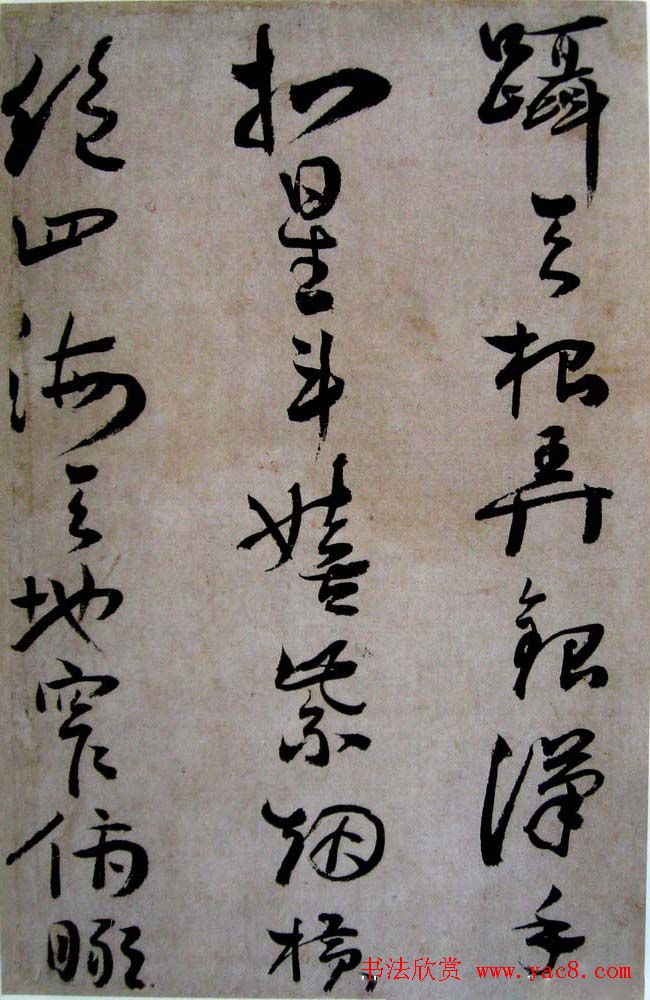 躡天根弄銀漢手
扣星斗嬉紫烟橫
絶四海天地窄俯瞰
书法欣赏 www.yac8.com